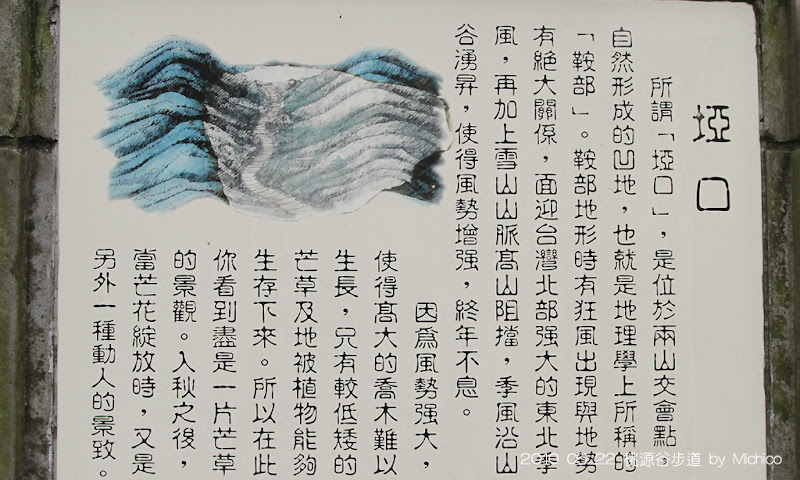 埡口
所謂「埡口」，是位於兩山交會點。
自然形成的凹地，也就是地理學上所稱的
「鞍部」。鞍部地形時有狂風出現與地勢
有絕大關係，面迎台灣北部强大的東北季
風，再加上雪山山脈高山阻擋，季風沿山
谷湧昇，使得風勢增强，終年不息。
因為風勢强大，
使得高大的喬木難以
生長，只有較低矮的
芒草及地被植物能夠
生存下來。所以在此
你看到盡是一片芒草
的景觀。入秋之後，
當芒花綻放時，又是
另外一種動人的景致。
桃源谷步道 by Michico